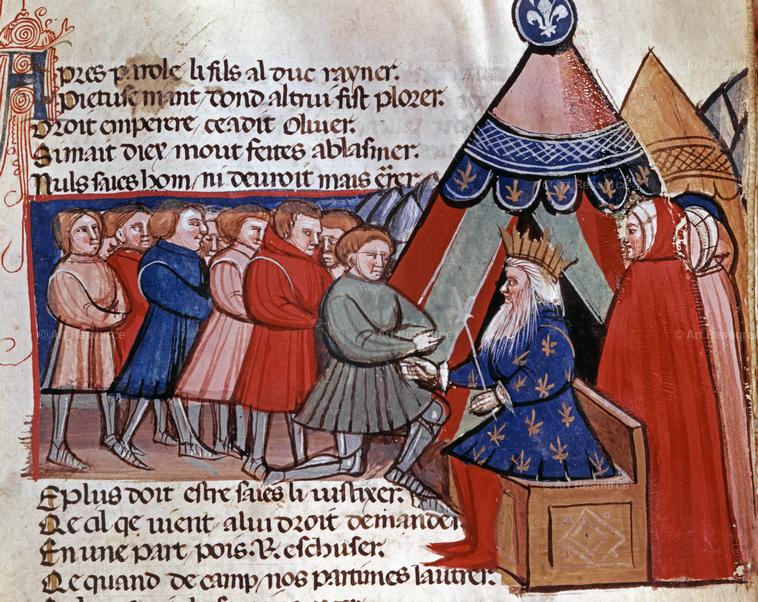 Apres parole li fils al duc rayner.
Pietuse mant / dond altrui fist plorer.
Droit emperere, ce a dit Oliuer.
Si mait diex mout feites a blasmer.
Nuls saies hom / ni deuroit mais
E plus doit estre saies li
Qe cil qe uient a lui droit demander
En une part pois. R. eschuser.
Qe quand de camp / nos partimes lautrer.
© Art Resource